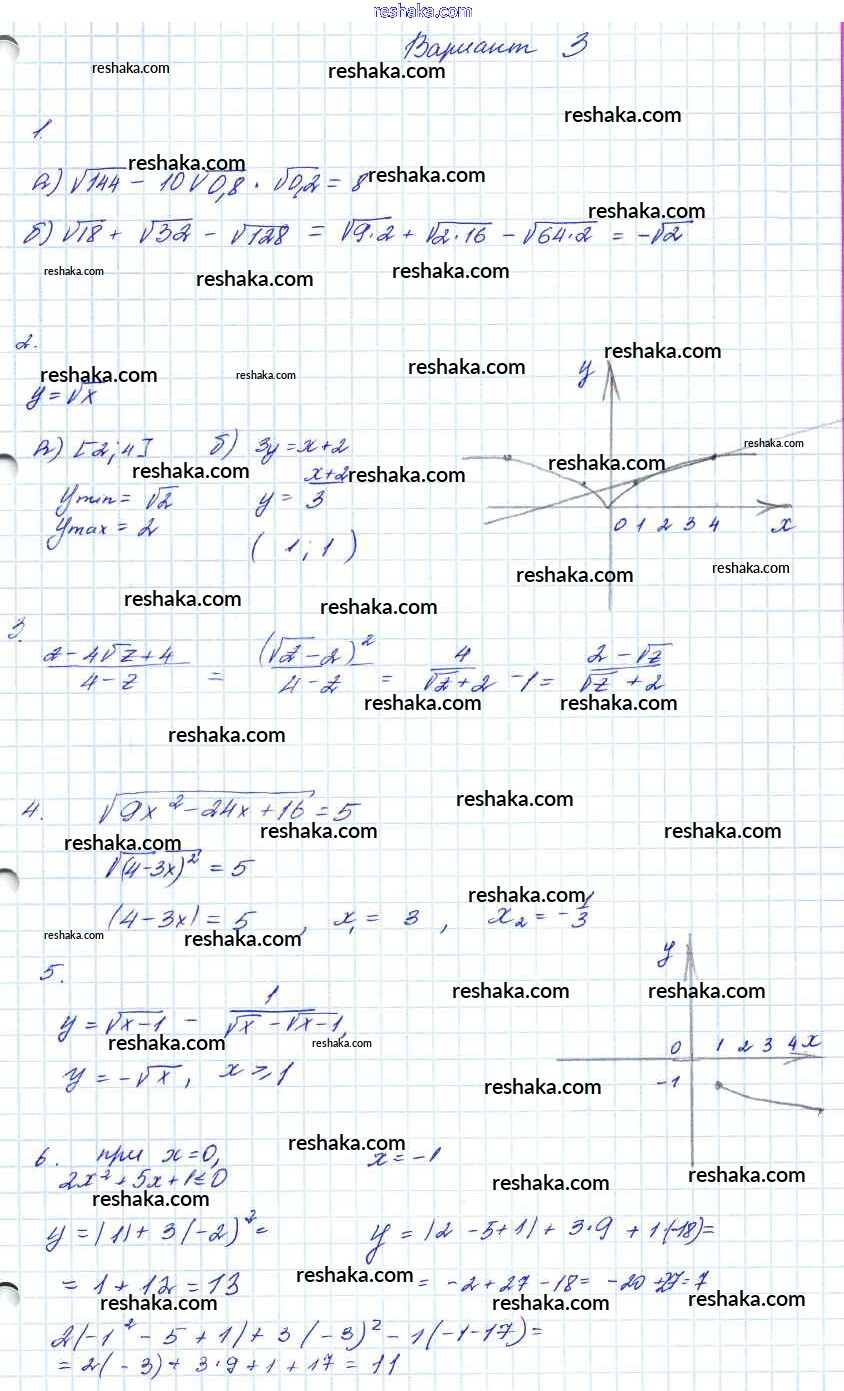 reshaka.com
Вариант 3
reshaka.com reshaka.com
reshaka.com
1.
reshaka.com reshaka.com
а) √144 - 10√0,8 · √0,2 = 8
reshaka.com
б) √18 + √32 - √128 = √9·2 + √2·16 - √64·2 = -√2
reshaka.com reshaka.com reshaka.com
2.
reshaka.com reshaka.com reshaka.com reshaka.com
y = √x
y
а) [2;4] б) 3y = x+2
reshaka.com reshaka.com reshaka.com reshaka.com
y min = √2 y = x+2/3
y max = 2
0 1 2 3 4 x
(1;1)
reshaka.com reshaka.com
reshaka.com reshaka.com
3.
z-4√z+4/4-z = (√z-2)²/4-z = 4/√z+2 -1 = 2-√z/√z+2
reshaka.com reshaka.com
reshaka.com
4. √9x²-24x+16 = 5
reshaka.com
reshaka.com reshaka.com reshaka.com
√(4-3x)² = 5
reshaka.com
|4-3x| = 5, x₁ = 3, x₂ = -1/3
reshaka.com reshaka.com
5.
y
reshaka.com reshaka.com
y = √x-1 - 1/√x-√x-1,
reshaka.com reshaka.com
0 1 2 3 4 x
y = -√x, x ⩾ 1
-1
reshaka.com
6. при x=0, x=-1
reshaka.com
2x²+5x+1≤0
reshaka.com reshaka.com reshaka.com
y = |1| + 3(-2)² =
y = |2-5+1| + 3·9 + 1·(-18) =
= 1+12 = 13
= -2+27-18 = -20+27=7
reshaka.com reshaka.com
reshaka.com reshaka.com
2(-1² - 5 + 1) + 3(-3)² - 1(-1-17) =
= 2(-3) + 3·9 + 1 + 17 = 11